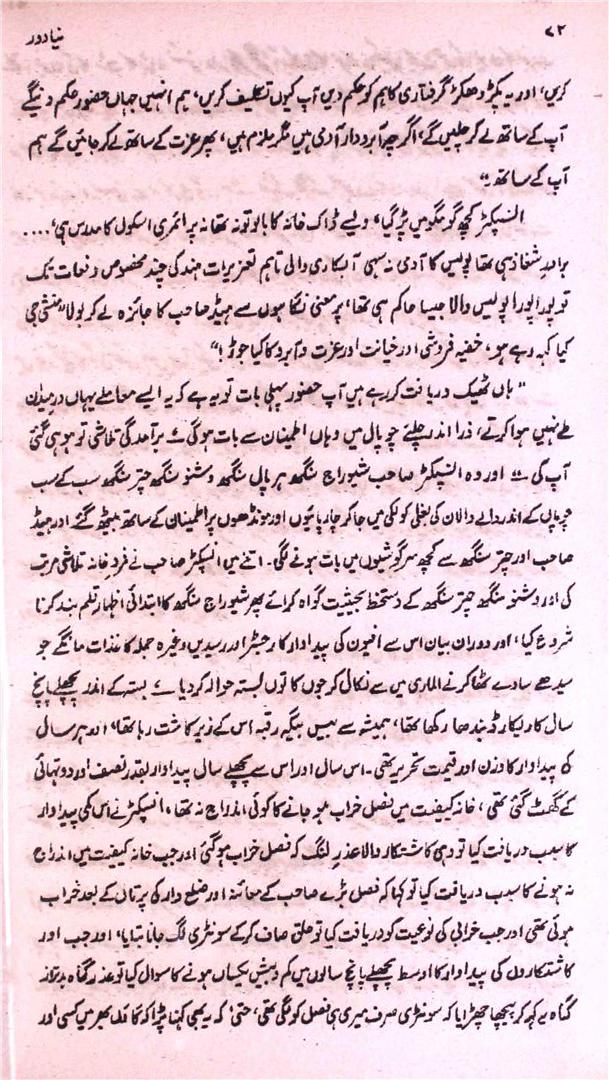 ۷۲
نیا دور
کریں، اور یہ پکڑ دھکڑ گرفتاری کا ہم کو حکم دیں آپ کیوں تکلیف کریں، ہم انہیں جہاں حضور حکم دینگے
آپ کے ساتھ لے کر چلیں گے، اگرچہ آبرودار آدمی ہیں مگر ملزم ہیں، پھر عزت کے ساتھ لے کر جائیں گے ہم
آپ کے ساتھ۔"
انسپکٹر کچھ گومگو میں پڑ گیا، ویسے ڈاک خانہ کا بابو تو نہ تھا نہ پرائمری اسکول کا مدرس ہی، ....
تھا پولیس کا آدمی نہ سہی آبکاری والی تاہم تعزیرات ہند کی چند مخصوص دفعات تک
تو پورا پورا پولیس والا جیسا حاکم ہی تھا، پرمعنی نگاہوں سے ہیڈ صاحب کا جائزہ لے کر بولا "منشی جی
کیا کہہ رہے ہو، خفیہ فروشی اور خیانت اور عزت و آبرو کا کیا جوڑ!"
"ہاں ٹھیک دریافت کر رہے ہیں آپ حضور پہلی بات تو یہ ہے کہ یہ ایسے معاملے یہاں در میدان
طے نہیں ہوا کرتے، ذرا اندر چلئے چوپال میں وہاں اطمینان سے بات ہوگی ے برآمدگی تلاشی تو ہو ہی گئی
آپ کی ے" اور وہ انسپکٹر صاحب شیوراج سنگھ ہرپال سنگھ وشنو سنگھ چتر سنگھ سب کے سب
چوپال کے اندر والے دالان کی بغلی کولکی میں جا کر چارپائیوں اور مونڈھوں پر اطمینان کے ساتھ بیٹھ گئے اور ہیڈ
صاحب اور چتر سنگھ سے کچھ سرگوشیوں میں بات ہونے لگی۔ اتنے میں انسپکٹر صاحب نے فرد خانہ تلاشی مرتب
کی اور وشنو سنگھ چتر سنگھ کے دستخط بحیثیت گواہ کرائے پھر شیوراج سنگھ کا ابتدائی اظہار قلم بند کرنا
شروع کیا، اور دوران بیان اس سے افیون کی پیداوار کا رجسٹر اور رسیدیں وغیرہ جملہ کاغذات مانگے جو
سیدھے سادے ٹھاکر نے الماری میں سے نکال کر جوں کا توں بستہ حوالہ کر دیا ے بستہ کے اندر پچھلے پانچ
سال کا ریکارڈ بندھا رکھا تھا، ہمیشہ سے بیس بیگہ رقبہ اس کے زیر کاشت رہا تھا، اور ہر سال
کی پیداوار کا وزن اور قیمت تحریر تھی۔ اس سال اور اس سے پچھلے سال پیداوار بقدر نصف اور دو تہائی
کے گھٹ گئی تھی، خانہ کیفیت میں فصل خراب ہو جانے کا کوئی اندراج نہ تھا، انسپکٹر نے اس کمی پیداوار
کا سبب دریافت کیا تو وہی کاشتکار والا عذر لنگ کہ فصل خراب ہو گئی اور جب خانہ کیفیت میں اندراج
نہ ہونے کا سبب دریافت کیا تو کہا کہ فصل بڑے صاحب کے معائنہ اور ضلع دار کی پرتال کے بعد خراب
ہوئی تھی اور جب خرابی کی نوعیت کو دریافت کیا تو حلق صاف کر کے سونٹری لگ جانا بتایا، اور جب اور
کاشتکاروں کی پیداوار کا اوسط پچھلے پانچ سالوں میں کم و بیش یکساں ہونے کا سوال کیا تو عذر گناہ بدتر از
گناہ یہ کہہ کر پیچھا چھڑایا کہ سونٹری صرف میری ہی فصل کو لگی تھی، حتیٰ کہ یہ بھی کہنا پڑا کہ گاؤں بھر میں کسی اور